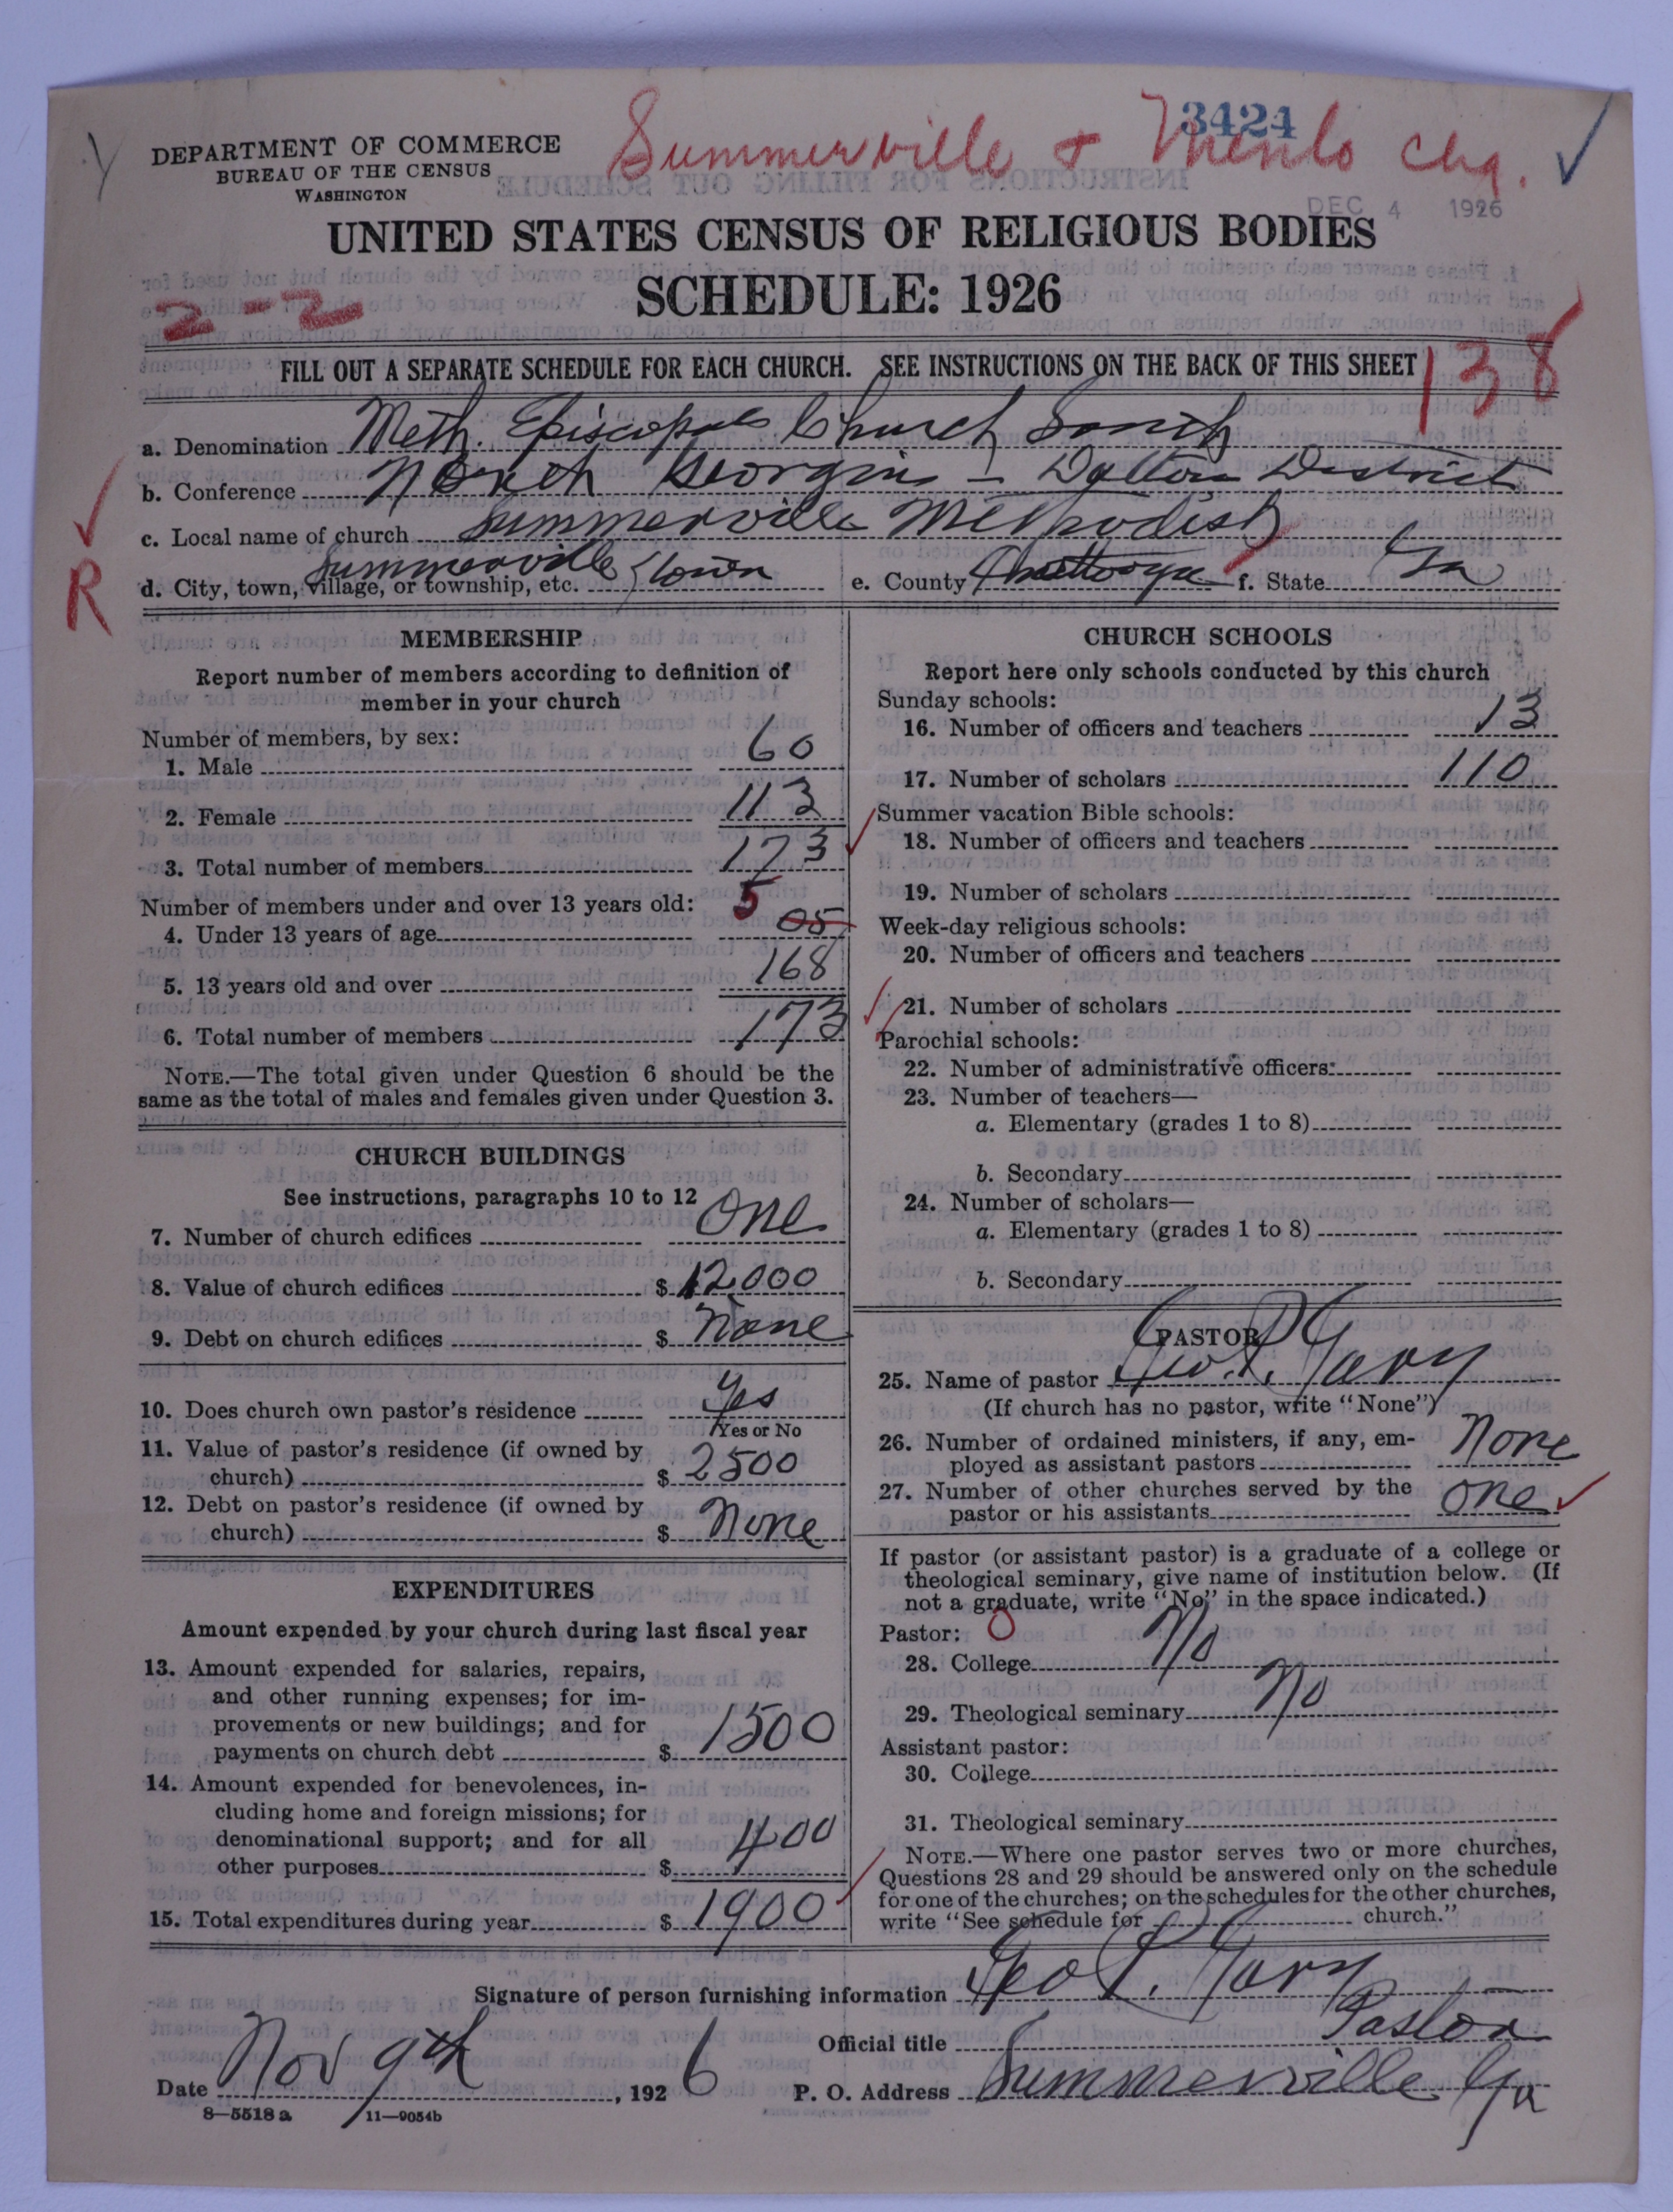 3424
Summerville & Menlo Chg.
DEPARTMENT OF COMMERCE
BUREAU OF THE CENSUS
WASHINGTON
DEC 4 1926
UNITED STATES CENSUS OF RELIGIOUS BODIES
SCHEDULE: 1926
2-2
138
FILL OUT A SEPARATE SCHEDULE FOR EACH CHURCH. SEE INSTRUCTIONS ON THE BACK OF THIS SHEET
a. Denomination Meth. Episcopal Church South
b. Conference North Georgia - Dalton District
c. Local name of church Summerville Methodist
d. City, town, village, or township, etc. Summerville town e. County Chattooga f. State Ga
R
MEMBERSHIP
Report number of members according to definition of
member in your church
Number of members, by sex:
1. Male 60
2. Female 113
3. Total number of members 173
Number of members under and over 13 years old: 5
4. Under 13 years of age 05
5. 13 years old and over 168
6. Total number of members 173
NOTE.—The total given under Question 6 should be the
same as the total of males and females given under Question 3.
CHURCH BUILDINGS
See instructions, paragraphs 10 to 12
7. Number of church edifices One
8. Value of church edifices $ 12000
9. Debt on church edifices $ None
10. Does church own pastor's residence Yes
Yes or No
11. Value of pastor's residence (if owned by
church) $ 2500
12. Debt on pastor's residence (if owned by
church) $ None
EXPENDITURES
Amount expended by your church during last fiscal year
13. Amount expended for salaries, repairs,
and other running expenses; for im-
provements or new buildings; and for
payments on church debt $ 1500
14. Amount expended for benevolences, in-
cluding home and foreign missions; for
denominational support; and for all
other purposes $ 400
15. Total expenditures during year $ 1900
CHURCH SCHOOLS
Report here only schools conducted by this church
Sunday schools:
16. Number of officers and teachers 13
17. Number of scholars 110
Summer vacation Bible schools:
18. Number of officers and teachers
19. Number of scholars
Week-day religious schools:
20. Number of officers and teachers
21. Number of scholars
Parochial schools:
22. Number of administrative officers:
23. Number of teachers—
a. Elementary (grades 1 to 8)
b. Secondary
24. Number of scholars—
a. Elementary (grades 1 to 8)
b. Secondary
PASTOR
25. Name of pastor Geo. P. Gary
(If church has no pastor, write "None")
26. Number of ordained ministers, if any, em-
ployed as assistant pastors None
27. Number of other churches served by the
pastor or his assistants One
If pastor (or assistant pastor) is a graduate of a college or
theological seminary, give name of institution below. (If
not a graduate, write "No" in the space indicated.)
Pastor: 0
28. College No
29. Theological seminary No
Assistant pastor:
30. College
31. Theological seminary
NOTE.—Where one pastor serves two or more churches,
Questions 28 and 29 should be answered only on the schedule
for one of the churches; on the schedules for the other churches,
write "See schedule for church."
Signature of person furnishing information Geo P. Gary
Official title Pastor
Date Nov 9th, 1926 P. O. Address Summerville Ga
8—5518 a 11—9054b